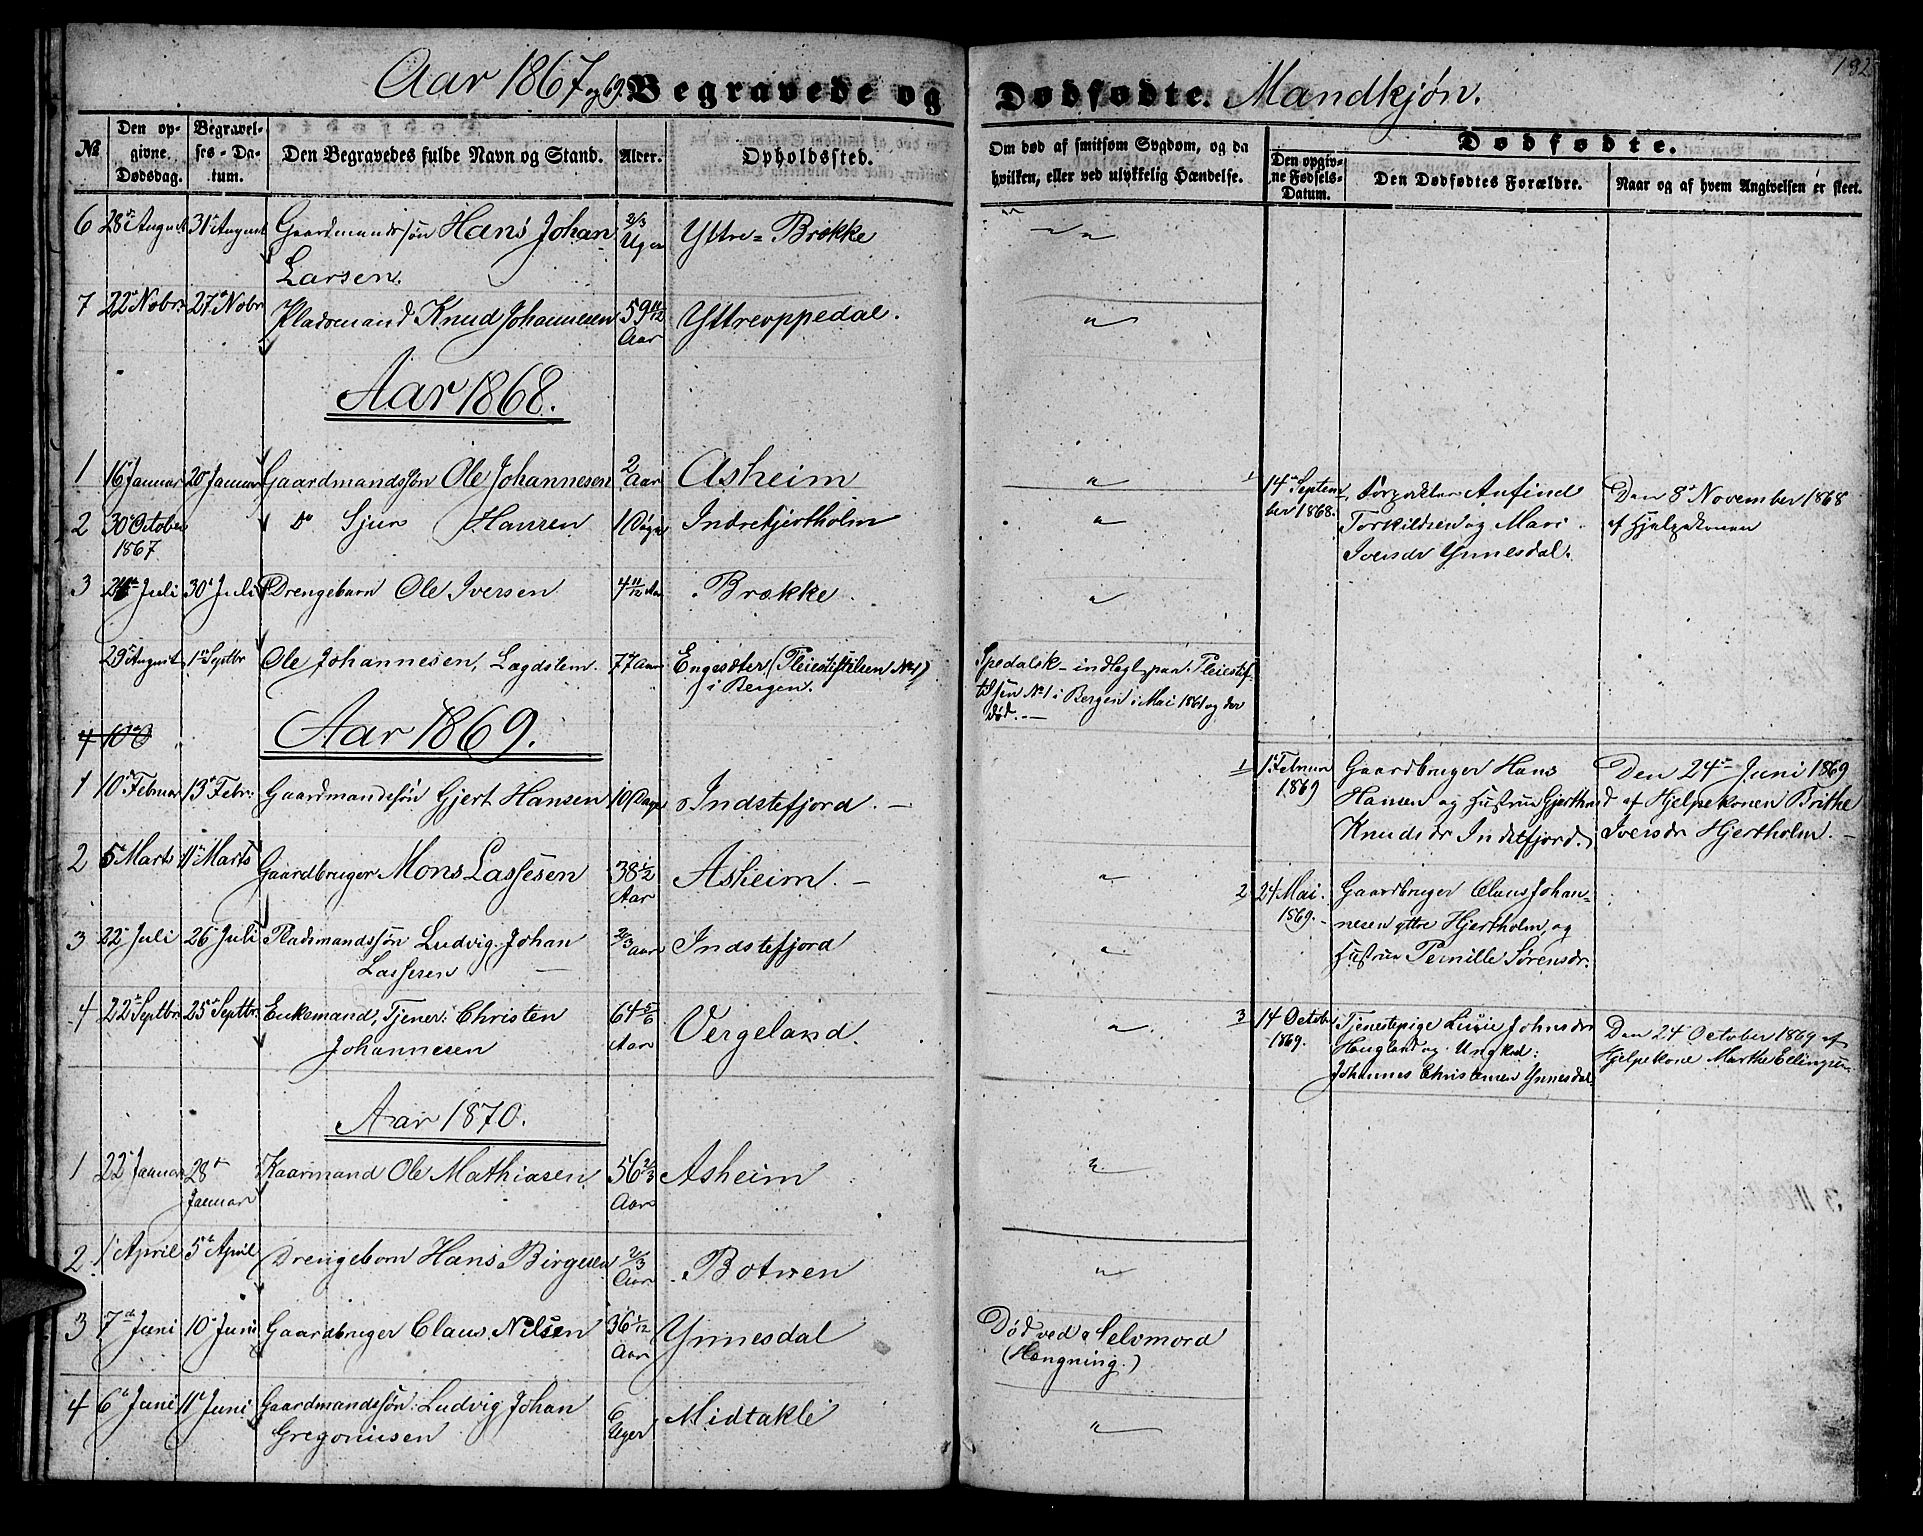 Aar 1867 og 69. Begravede og Dødfødte. Mandkjøn.
192
№ | Den opgivne Dødsdag. | Begravelses-Datum. | Den Begravedes fulde Navn og Stand. | Alder. | Opholdssted. | Om død af smitsom Sygdom, og da hvilken, eller ved ulykkelig Hændelse.
Dødfødte.
Den opgivne Fødsels-Datum. | Den Dødfødtes Forældre. | Naar og af hvem Angivelsen er skeet.
6 28de August 31te August Gaardmandssøn Hans Johan 2/3 Uger Yttre=Brøkke "
Larsen.
7 22de Nobr. 27de Nobr Pladsemand Knud Johannesen 59 11/12 Aar Yttreoppedal. "
Aar 1868.
1 16de Januar 20de Januar Gaardmandssøn Ole Johannesen 2 Aar Asheim "
2 30de October 1867 Do Sjur Hansen 1 Døgn Indrehjertholm "
3 24de Juli 30de Juli Drengebarn Ole Iversen 4 11/12 Aar Brække "
29de August 1ste Septbr Ole Johannesen, Lægdslem. 77 Aar Engesæter (Pleiestiftelsen No 1)
i Bergen.
Spedalsk - indlagt paa Pleiestif-
telsen No 1 i Bergen i Mai 1861 og der
død. -
4 10de
Aar 1869.
1 10de Februar 13de Febr: Gaardmandssøn Gjert Hansen 10 Dage Indstefjord. -
2 5te Marts 11te Marts Gaardbruger Mons Lassesen 38 1/2 Aar Asheim. - "
3 22de Juli 26de Juli Pladsmandssøn Ludvig Johan 2/3 Aar Indstefjord "
Lassesen -
4 22de Septbr. 25de Septbr. Enkemand, Tjener: Christen 64 5/6 Aar Vergeland. "
Johannesen
Aar 1870.
1 22de Januar 28de Januar Kaarmand Ole Mathiasen 56 2/3 Aar Asheim "
2 1ste April 5te April Drengebarn Hans Birgesen 2/3 Aar Botnen "
3 7de Juni 10de Juni Gaardbruger Claus Nilsen 36 1/12 Aar Ynnesdal Død ved Selvmord
(Hængning.)
4 6te Juni 11te Juni Gaardmandssøn: Ludvig Johan 6 Uger Midtakle "
Gregoriusen
1 14de Septem- Anfind Den 8de November 1868
ber 1868. Torkildsen og Mari af Hjelpekonen
Iversdr Ynnesdal.
1 1ste Februar Gaardbruger Hans Den 24de Juni 1869
1869 Hansen og Hustru Gjertrud af Hjelpekonen Brithe
Knudsdr Indstefjord. Iversdr Hjertholm. -
2 24 Mai Gaardbruger Claus Johan-
1869. - nesen yttre Hjertholm, og
Hustru Pernille Sørensdr.
3 14 October Tjenestepige Lusie Johnsdr Den 24de October 1869 af
1869. Haugland og Ungkarl: Hjelpekone Marthe Ellingsen
Johannes Christensen Ynnesdal